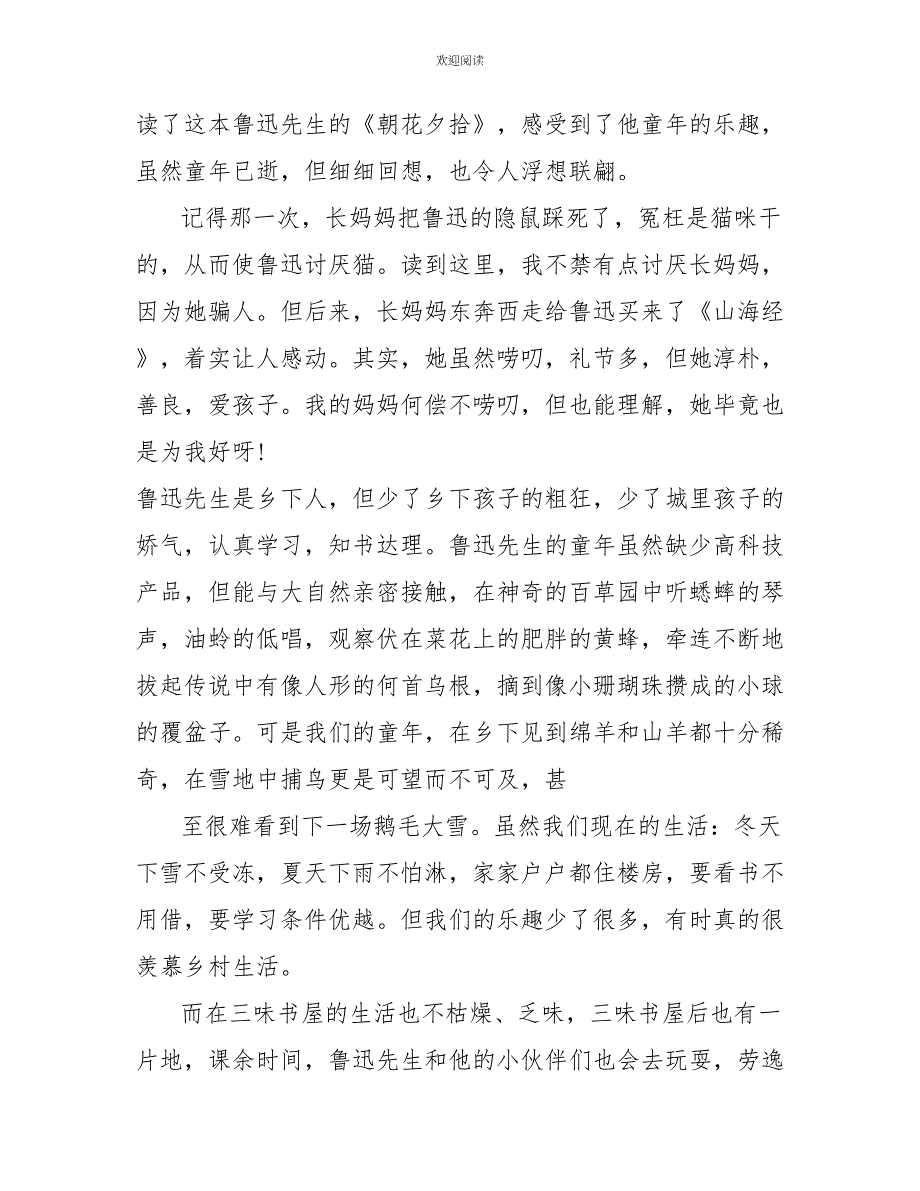 欢迎阅读
读了这本鲁迅先生的《朝花夕拾》，感受到了他童年的乐趣，
虽然童年已逝，但细细回想，也令人浮想联翩。
记得那一次，长妈妈把鲁迅的隐鼠踩死了，冤枉是猫咪干
的，从而使鲁迅讨厌猫。读到这里，我不禁有点讨厌长妈妈，
因为她骗人。但后来，长妈妈东奔西走给鲁迅买来了《山海经
》，着实让人感动。其实，她虽然唠叨，礼节多，但她淳朴，
善良，爱孩子。我的妈妈何偿不唠叨，但也能理解，她毕竟也
是为我好呀!
鲁迅先生是乡下人，但少了乡下孩子的粗狂，少了城里孩子的
娇气，认真学习，知书达理。鲁迅先生的童年虽然缺少高科技
产品，但能与大自然亲密接触，在神奇的百草园中听蟋蟀的琴
声，油蛉的低唱，观察伏在菜花上的肥胖的黄蜂，牵连不断地
拔起传说中有像人形的何首乌根，摘到像小珊瑚珠攒成的小球
的覆盆子。可是我们的童年，在乡下见到绵羊和山羊都十分稀
奇，在雪地中捕鸟更是可望而不可及，甚
至很难看到下一场鹅毛大雪。虽然我们现在的生活：冬天
下雪不受冻，夏天下雨不怕淋，家家户户都住楼房，要看书不
用借，要学习条件优越。但我们的乐趣少了很多，有时真的很
羡慕乡村生活。
而在三味书屋的生活也不枯燥、乏味，三味书屋后也有一
片地，课余时间，鲁迅先生和他的小伙伴们也会去玩耍，劳逸